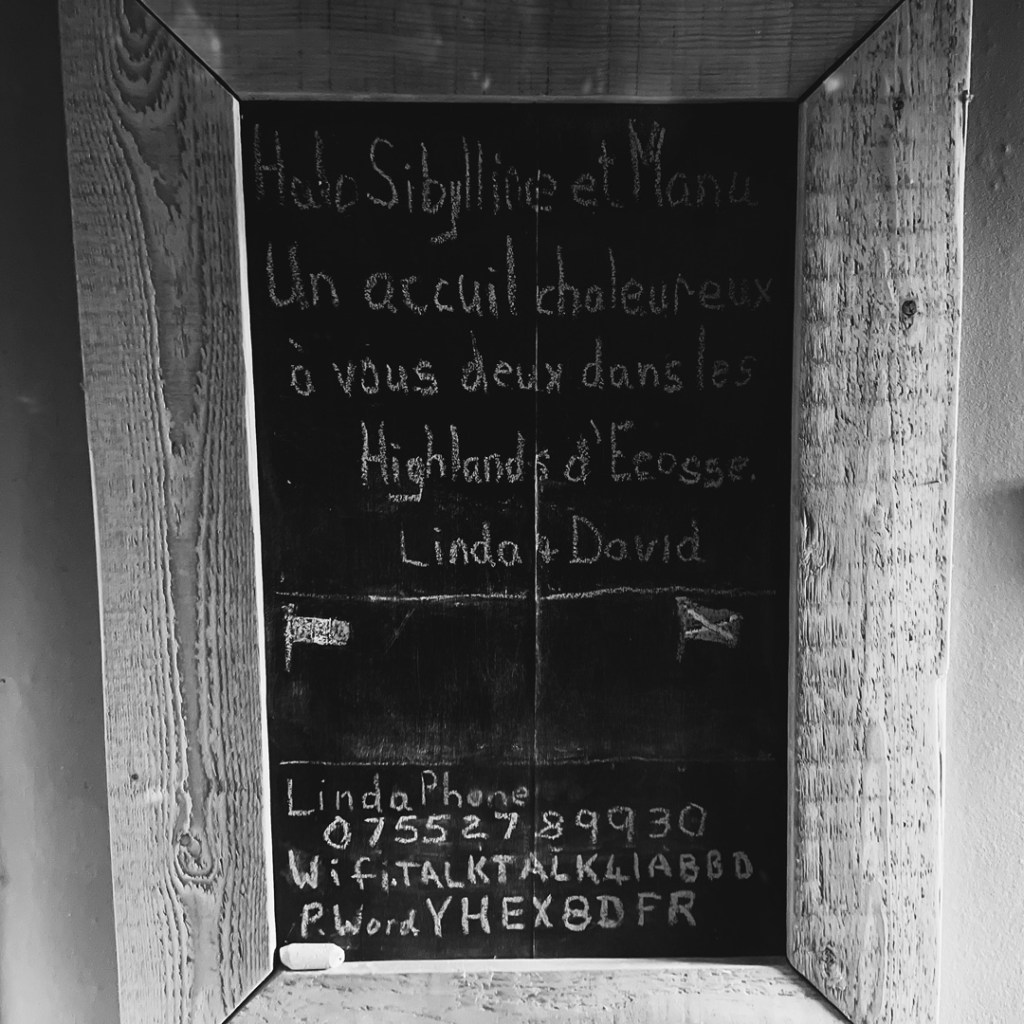 Halo Sibylline et Manu
Un accuil chaleureux
à vous deux dans les
Highlands d'Ecosse.
Linda + David
Linda Phone
07552789930
Wifi.TALKTALK41ABBD
P.Word YHEX8DFR